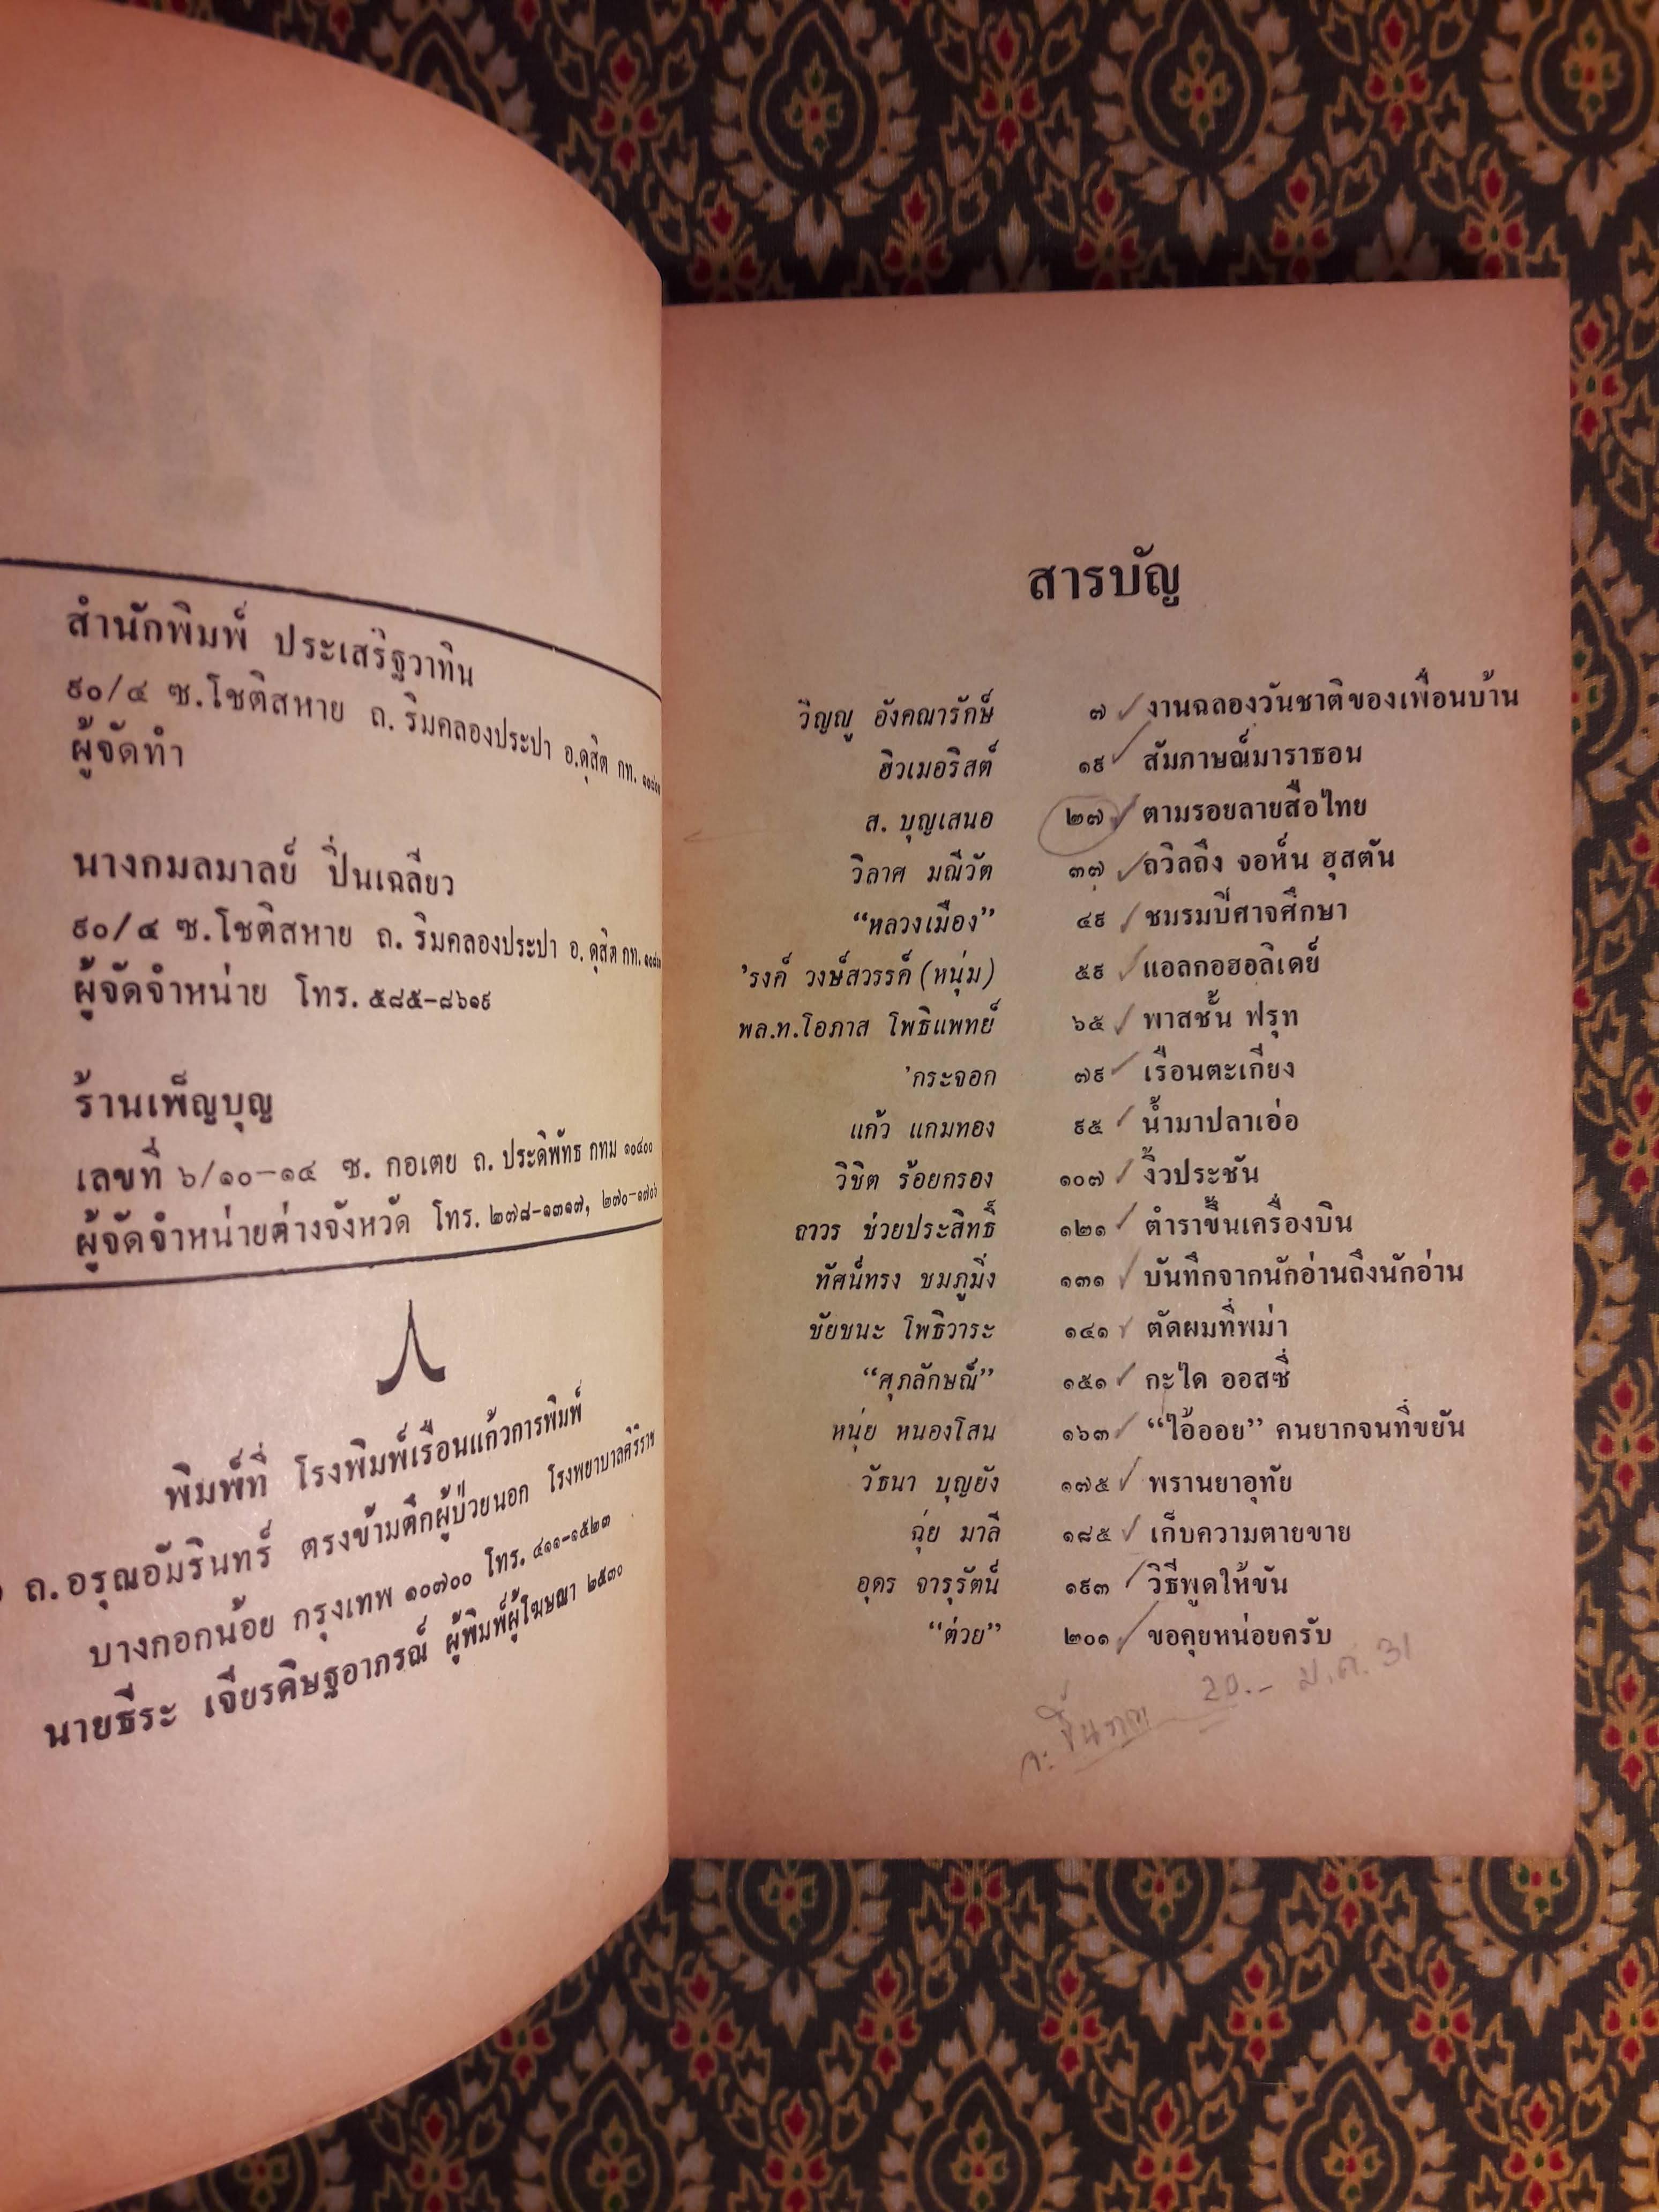 สำนักพิมพ์ ประเสริฐวาทิน
๙๐/๔ ซ.โชติสหาย ถ. ริมคลองประปา อ.ดุสิต กท.
ผู้จัดทำ
นางกมลมาลย์ ปิ่นเฉลียว
๙๐/๔ ซ.โชติสหาย ถ. ริมคลองประปา อ. ดุสิต กท.
ผู้จัดจำหน่าย โทร. ๕๘๕-๘๖๑๙
ร้านเพ็ญบุญ
เลขที่ ๖/๑๐-๑๔ ซ. กอเตย ถ. ประดิพัทธ กทม ๑๐๔๐๐
ผู้จัดจำหน่ายต่างจังหวัด โทร. ๒๗๘-๑๓๑๗, ๒๗๐-๑๗๐๖
พิมพ์ที่ โรงพิมพ์เรือนแก้วการพิมพ์
ถ.อรุณอัมรินทร์ ตรงข้ามตึกผู้ป่วยนอก โรงพยาบาลศิริราช
บางกอกน้อย กรุงเทพ ๑๐๗๐๐ โทร. ๔๑๑-๑๕๒๓
นายธีระ เจียรดิษฐอาภรณ์ ผู้พิมพ์ผู้โฆษณา ๒๕๓๐
สารบัญ
วิญญู อังคณารักษ์ ๗ งานฉลองวันชาติของเพื่อนบ้าน
ฮิวเมอริสต์ ๑๙ สัมภาษณ์มาราธอน
ส. บุญเสนอ ๒๗ ตามรอยลายสือไทย
วิลาศ มณีวัต ๓๗ ถวิลถึง จอห์น ฮุสตัน
“หลวงเมือง” ๔๙ ชมรมปีศาจศึกษา
’รงค์ วงษ์สวรรค์ (หนุ่ม) ๕๙ แอลกอฮอลิเดย์
พล.ท.โอภาส โพธิแพทย์ ๖๕ พาสชั้น ฟรุท
’กระจอก ๗๙ เรือนตะเกียง
แก้ว แกมทอง ๙๕ น้ำมาปลาเอ่อ
วิชิต ร้อยกรอง ๑๐๗ งิ้วประชัน
ถาวร ช่วยประสิทธิ์ ๑๒๑ ตำราขึ้นเครื่องบิน
ทัศน์ทรง ชมภูมิ่ง ๑๓๑ บันทึกจากนักอ่านถึงนักอ่าน
ชัยชนะ โพธิวาระ ๑๔๑ ตัดผมที่พม่า
“ศุภลักษณ์” ๑๕๑ กะได ออสซี่
หนุ่ย หนองโสน ๑๖๓ “ไอ้ออย” คนยากจนที่ขยัน
วัธนา บุญยัง ๑๗๕ พรานยาอุทัย
ฉุ่ย มาลี ๑๘๕ เก็บความตายขาย
อุดร จารุรัตน์ ๑๙๓ วิธีพูดให้ขัน
“ต่วย” ๒๐๑ ขอคุยหน่อยครับ
20.- ม.ค. 31